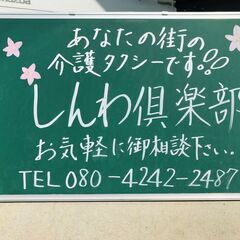 あなたの街の
介護タクシーです!!!
しんわ倶楽部
お気軽に御相談下さい...
TEL 080-4242-2487